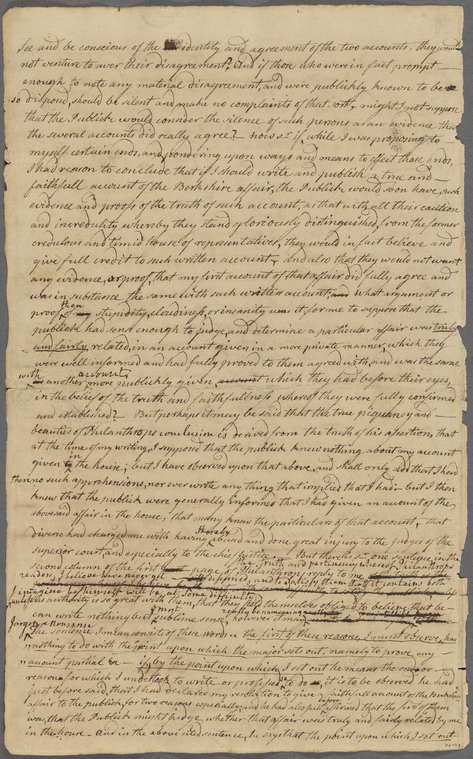 see and be conscious of the identity and agreement of the two accounts, they would
not venture to aver their disagreement? And if those who were in fact prompt
enough to note any material disagreement, and were publickly known to be
so dispos'd, should be silent and make no complaints of that sort, might I not suppose
that the Publick would consider the silence of such persons as an evidence that
the several accounts did really agree? now sr. if, while I was proposing to
myself certain ends, and pondering upon ways and means to effect those ends,
I had reason to conclude that if I should write and publish a true and
faithfull account of the Berkshire affair, the Publick would soon have such
evidence and proofs of the truth of such account, as that with all their caution
and incredulity, whereby they stand gloriously distinguished from the former
credulous and timid house of representatives, they would in fact believe and
give full credit to such written account; and also that they would not want
any evidence, or proof, that my first account of that affair did fully agree and
was in substance the same with such written account, what argument or
proof then of stupidity, cloudiness, or insanity was it, for me to suppose that the
publick had sense enough to judge, and determine a particular affair was truly
and fairly related in an account given in a more private manner, which they
were well informed and had fully proved to them agreed with, and was the same
with another account more publickly given which they had before their eyes,
in the belief of the truth and faithfulness whereof they were fully confirmed
and established? But perhaps it may be said that the true piquancy and
beauties of Philanthrops conclusion is derived from the truth of his assertion, that
at the time of my writing, I supposed that the publick knew nothing about my account
given in the house; but I have observed upon that above, and shall only add that I had
then no such apprehensions, nor ever wrote any thing that implied that I had — but I then
knew that the publick were generally informed that I had given an account of the
abovesaid affair in the house, that many knew the particulars of that account, that
divers had charged me with having thereby abused and done great injury to the judges of the
superior court, and especially to the chief justice. But there is sr. one
second column of the first page of Philanthrops reply to me
can write nothing but sublime sense, however it may
The sentence I mean consists of these words the first of these reasons, I must observe, has
nothing to do with the point upon which the major sets out, namely to prove my
account partial by the point upon which I set out he meant the end or
reasons for which I undertook to write or professed to do it, it is to be observed he had
just before said, that I had declared my resolution to give a faithful account of the Berkshire
affair to the publick, for two reasons especially, and he had also just before affirmed that the first of them
was, that the Publick might judge, whether that affair was truly and fairly related by me
in the house — And in the above cited sentence, he says that the point upon which I set out